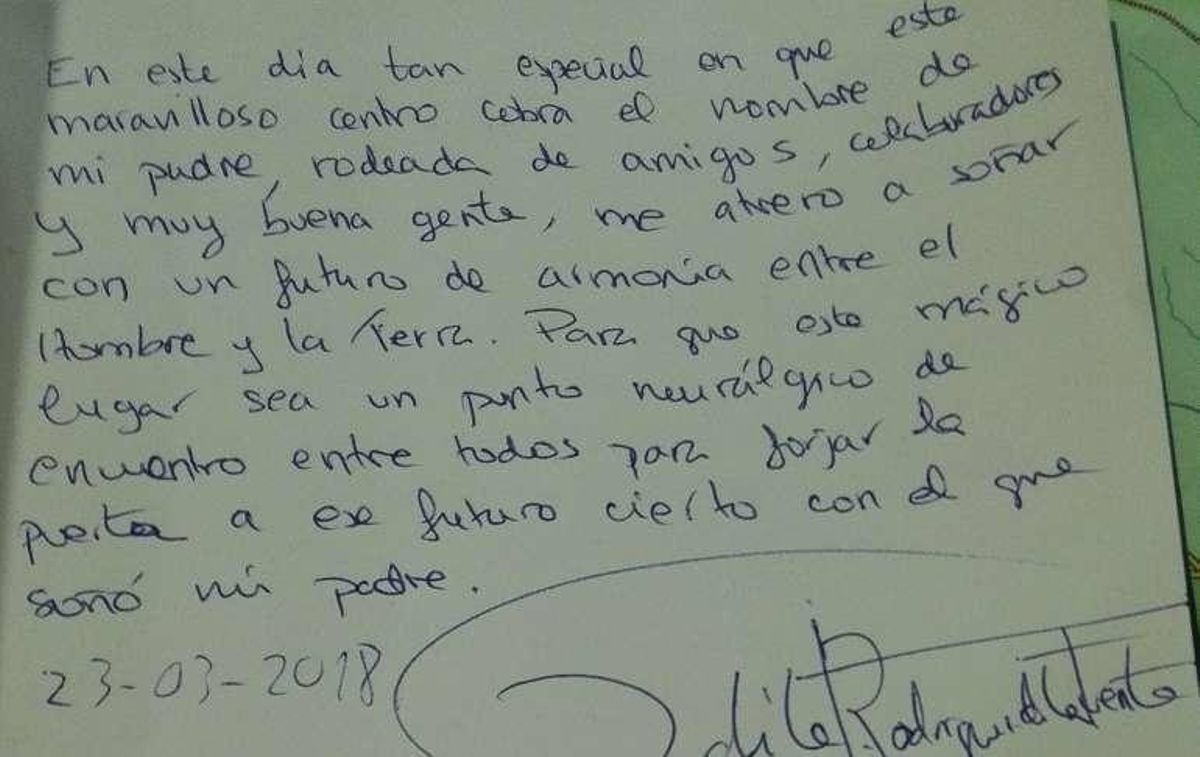 En este día tan especial en que este
maravilloso centro cobra el nombre de
mi padre, rodeada de amigos, colaboradores
y muy buena gente, me atrevo a soñar
con un futuro de armonía entre el
Hombre y la Tierra. Para que este mágico
lugar sea un punto neurálgico de
encuentro entre todos para forjar la
puerta a ese futuro cierto con el que
soñó mi padre.
23-03-2018
Odile Rodríguez de la Fuente